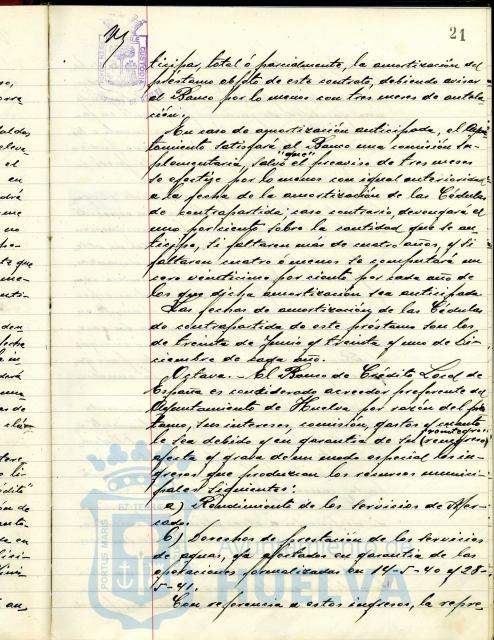 21
ticipar, total ó parcialmente, la amortización del
préstamo objeto de este contrato, debiendo avisar
al Banco por lo menos con tres meses de antela-
ción.
En caso de amortización anticipada, el Ayun-
tamiento satisfará al Banco una comisión su-
plementaria, salvo "que" el preaviso de tres meses
se efectúe por lo menos con igual anterioridad
a la fecha de la amortización de las Cédulas
de contrapartida; caso contrario, devengará el
uno por ciento sobre la cantidad que se an-
ticipe, si faltaren más de cuatro años, y si
faltaren cuatro ó menos se computará un
cero veinticinco por ciento por cada año de
los que dicha amortización sea anticipada.
Las fechas de amortización de las Cédulas
de contrapartida de este préstamo son las
de treinta de Junio y treinta y uno de Di-
ciembre de cada año.
Octava.- El Banco de Crédito Local de
España es considerado acreedor preferente del
Ayuntamiento de Huelva por razón del prés-
tamo, sus intereses, comisión, gastos y cuanto
le sea debido y en garantía de su
afecta y grava de un modo especial los in-
gresos que produzcan los recursos munici-
pales siguientes:
a) Rendimiento de los servicios de Mer-
cados
b) Derechos de prestación de los servicios
de aguas, ya afectados en garantía de las
operaciones formalizadas en 14-5-40 y 28-
5-41.
Con referencia a estos ingresos, la repre-
PORTUS MARIS ET TERRAE
Ayuntamiento de
HUELVA
CUSTODIA